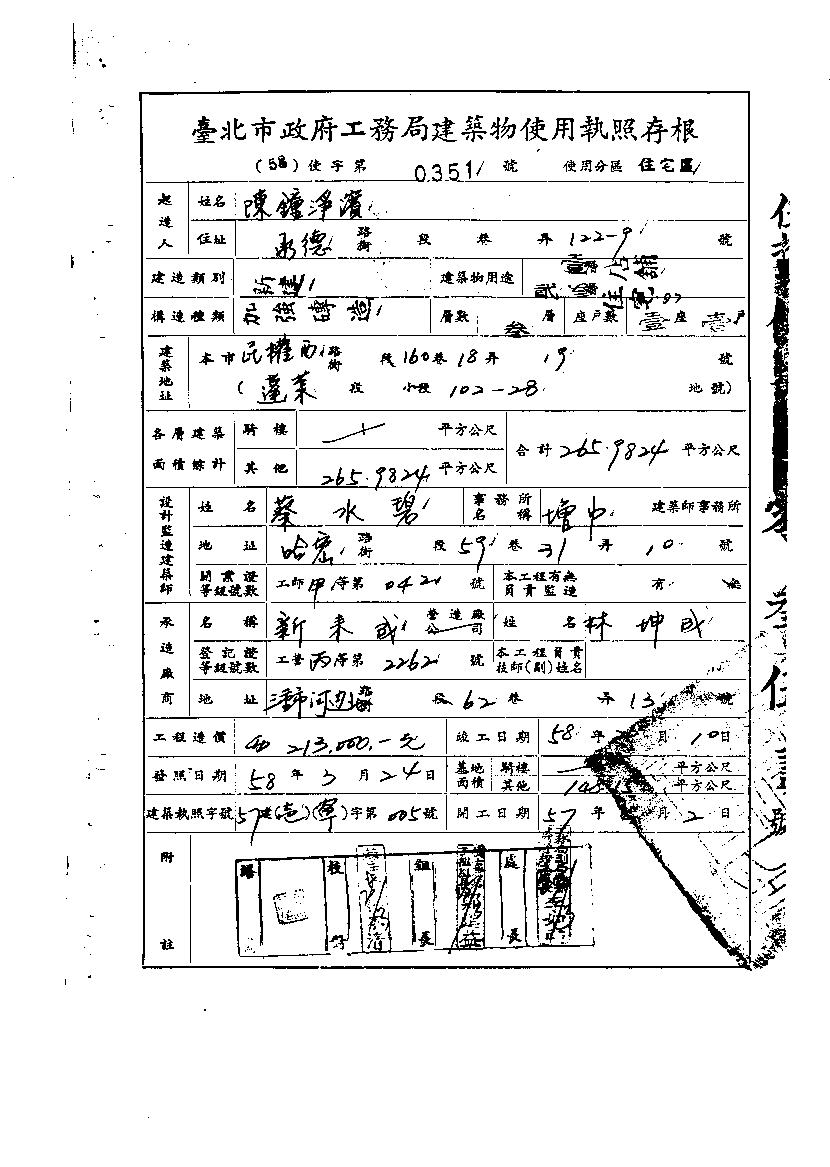 臺北市政府工務局建築物使用執照存根
(58) 使字第 0351 號 使用分區 住宅區
起造人 姓名 陳鐘淨濱
住址 承德 路街 段 巷 弄 122-9 號
建造類別 新建 建築物用途 壹 店舖 貳 住宅
構造種類 加強磚造 層數 叁 層 座戶數 壹座 壹戶
建築地址 本市民權西 路街 段 160巷 18弄 19 號
(蓬萊 段 小段 102-28 地號)
各層建築面積綜計 騎樓 平方公尺 合計 265.9824 平方公尺
其他 265.9824 平方公尺
設計監造建築師 姓名 蔡水碧 事務所名稱 增中 建築師事務所
地址 哈密 路街 段 59巷 31弄 10 號
開業證等級號數 工師甲等第 0421 號 本工程有無負責監造 有 無
承造廠商 名稱 新來成 營造廠公司 姓名 林坤成
登記證等級號數 工營丙等第 2262 號 本工程負責技師(副)姓名
地址 路街 段 62巷 弄 13 號
工程造價 213,000,-元 竣工日期 58年 月10日
發照日期 58年3月24日 基地面積 騎樓 平方公尺
其他 平方公尺
建築執照字號 57建( )( )字第 005號 開工日期 57年 月2日
附註 校對 組長 處長